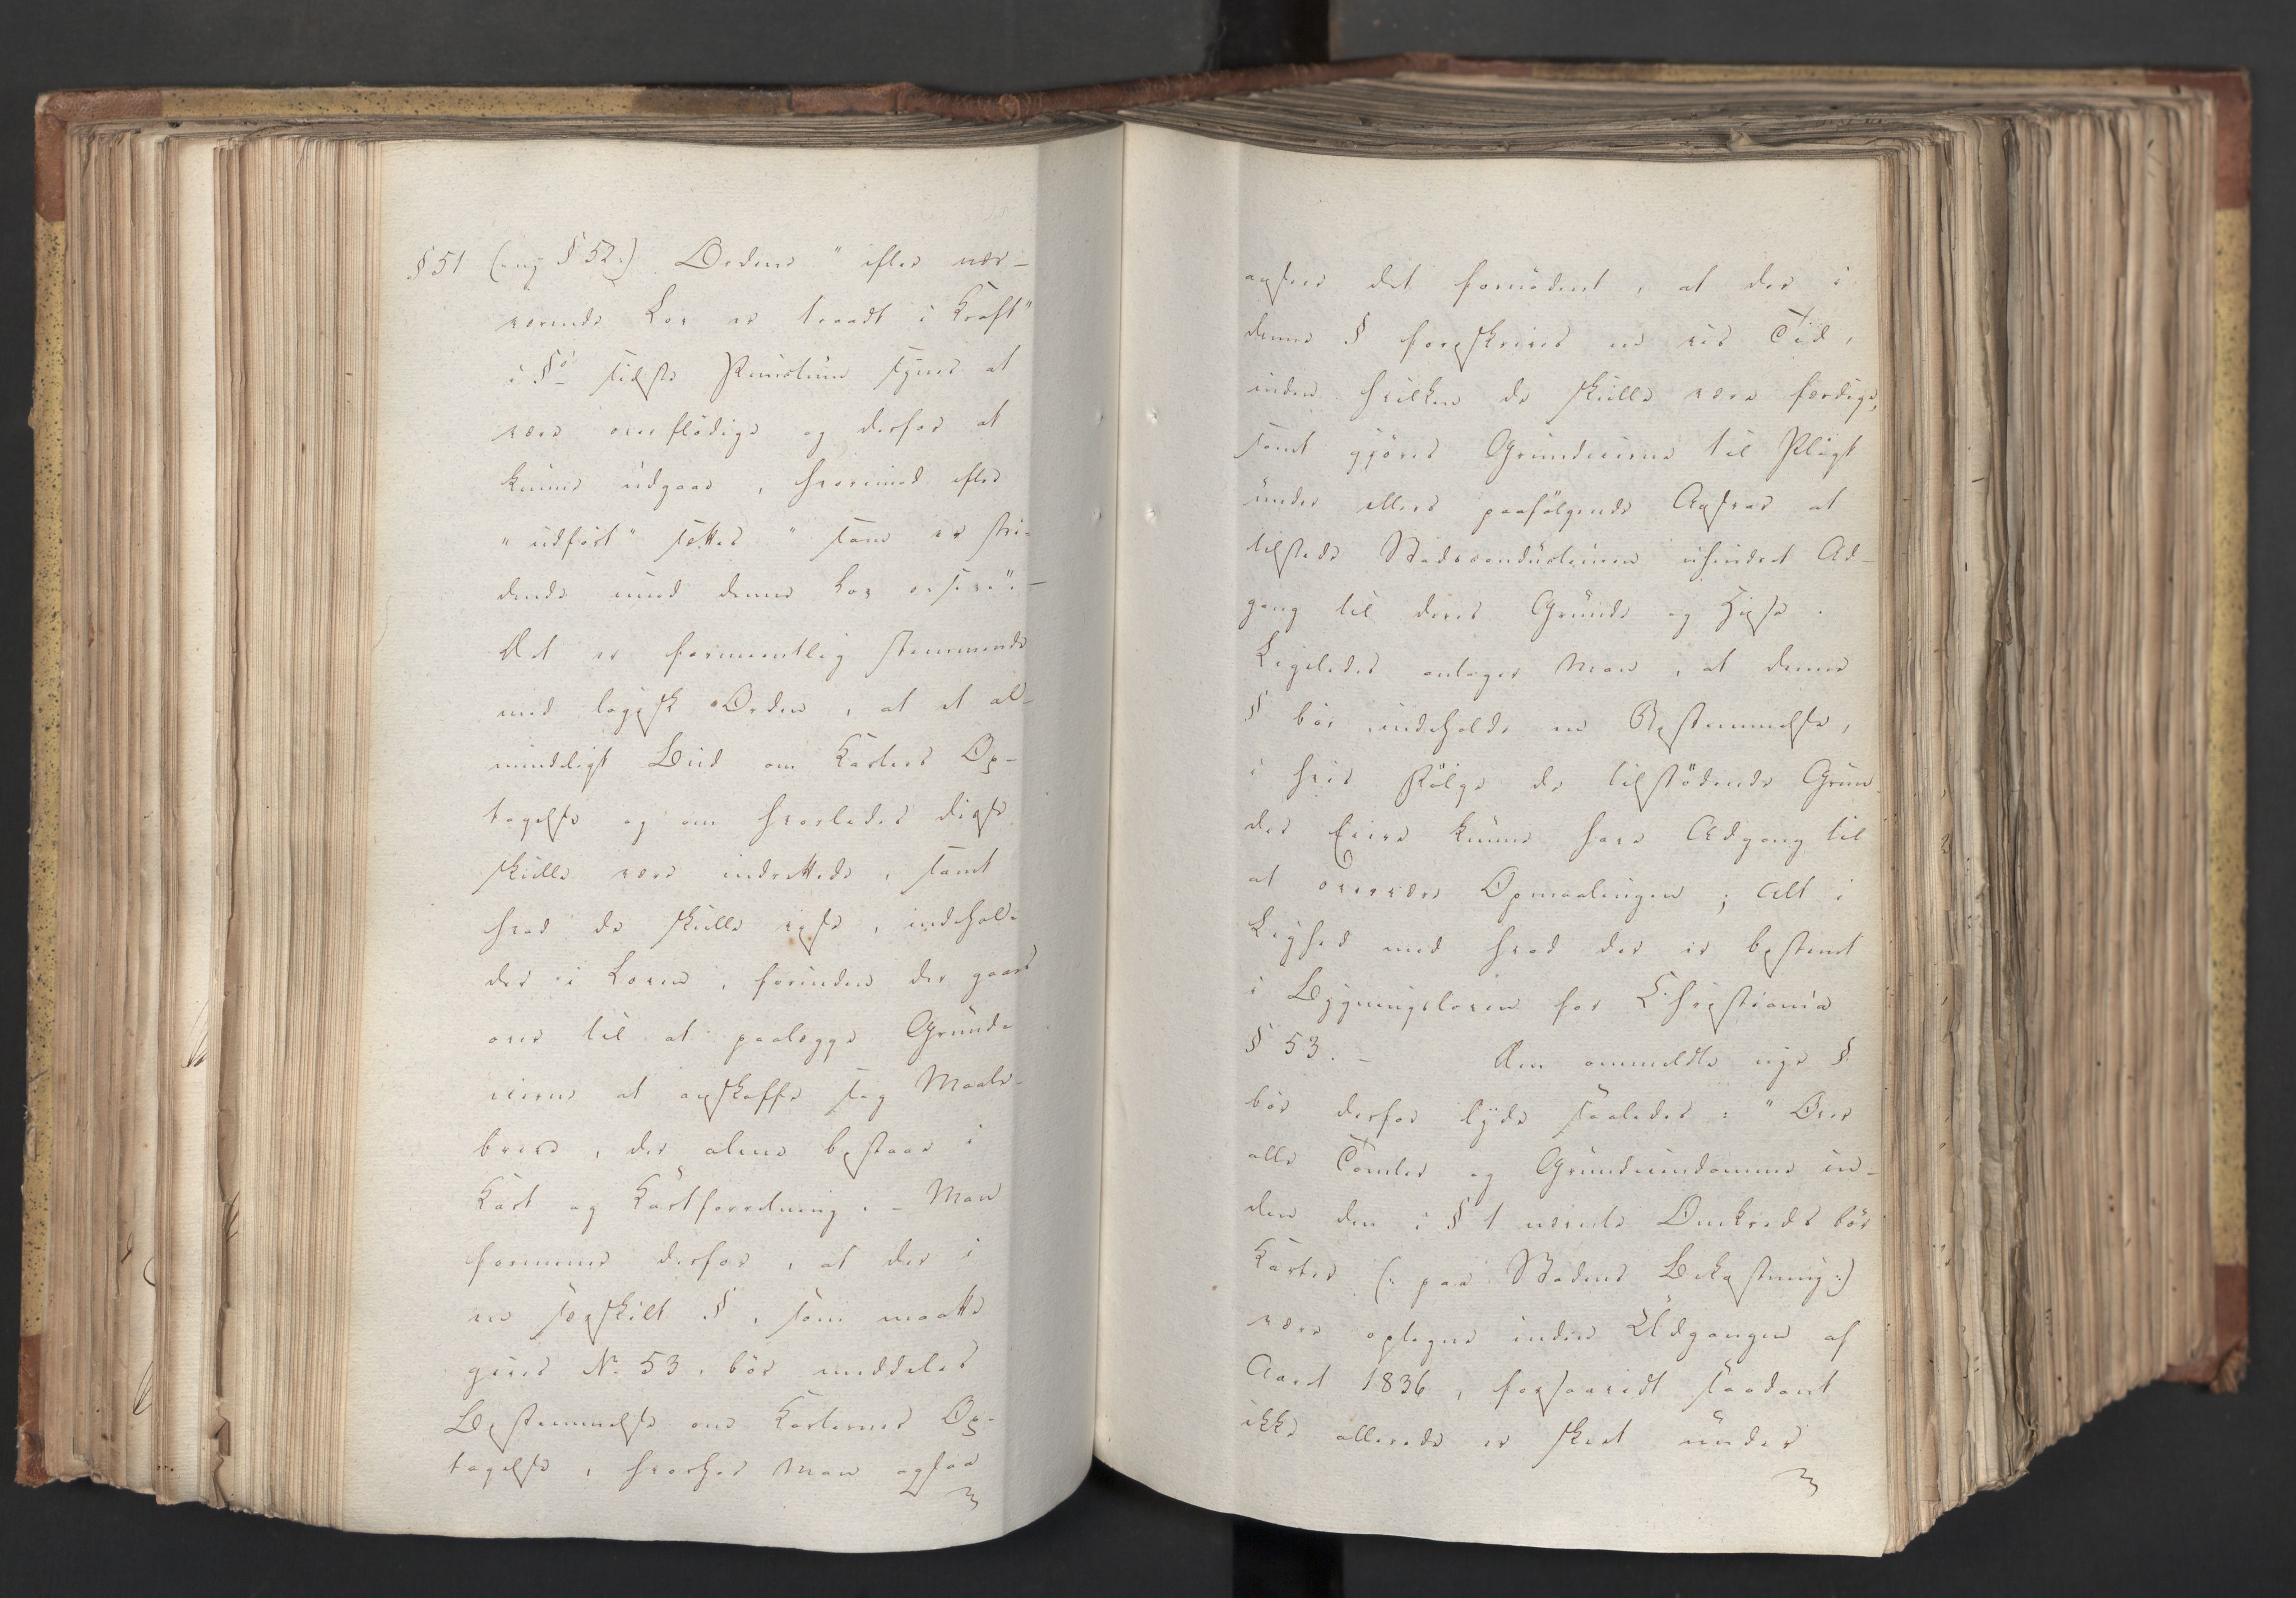 § 51 (: ny § 52:) Ordene "efter nær-
værende Lov er traadt i Kraft"
i §ens sidste Punctum synes at
være overflødige og derfor at
kunne udgaae, hvorimod efter
"udført" sættes "som er stri-
dende imod denne Lov". –
Det er formeentlig stemmende
med logisk Orden, at et al-
mindeligt Bud om Karters Op-
tagelse og om hvorledes disse
skulle være indrettede, samt
hvad de skulle vise, indehol-
des i Loven, forinden der gaaes
over til at paalægge Grund-
eierne at anskaffe sig Maale-
breve, der alene bestaae i
Kart og Kartforretning. – Man
formener derfor, at der i
en særskilt §, som maatte
gives No 53, bør meddeles
Bestemmelse om Karternes Op-
tagelse, hvorhos man ogsaa
anseer det fornødent, at der i
denne § foreskrives en vis Tid,
inden hvilken de skulle være færdige,
samt gjøres Grundeierne til Pligt
under ellers paafølgende Ansvar at
tilstede Stadsconducteuren uhindret Ad-
gang til deres Grunde og Huse.
Ligeledes antager man, at denne
§ bør indeholde en Bestemmelse,
i hvis Følge de tilstødende Grun-
des Eiere kunne have Adgang til
at overvære Opmaalingen; Alt i
Lighed med hvad der er bestemt
i Bygningsloven for Christiania
§ 53. – Den ommeldte nye §
bør derfor lyde saaledes: "Over
alle Tomter og Grundeiendomme in-
den den i § 1 nævnte Omkreds bør
Karter (: paa Stadens Bekostning:)
være optagne inden Udgangen af
Aaret 1836, forsaavidt saadant
ikke allerede er skeet under